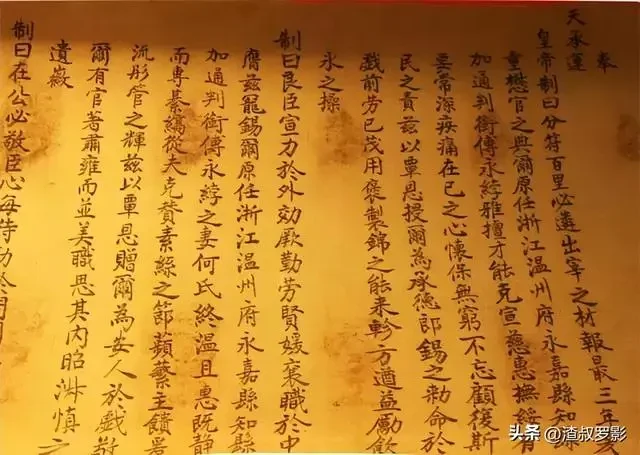 奉
天承運
皇帝制曰分符百里必遴出宰之材報最三年
重懋官之典爾原任浙江温州府永嘉縣知縣
加通判銜傅永綍雅擅才能克宣慈惠撫綏有
要常深疾痛在己之心懷保無窮不忘顧復斯
民之責兹以覃恩授爾為承德郎錫之勅命於
戲前勞已茂用褒製錦之能来軫方遒益勵飲
永之操
制曰良臣宣力於外効厥勤勞賢媛襄職於中
膺兹寵錫爾原任浙江温州府永嘉縣知縣
加通判銜傅永綍之妻何氏終温且惠既静
而專綦縞從夫克贊素絲之節蘋蘩主饋
流彤管之輝兹以覃恩贈爾為安人於戲敬
爾有官著肅雍而並美職思其内昭淋慎之
遺徽
制曰在公必敬臣心每恃勤於
头条 @渣叔罗影